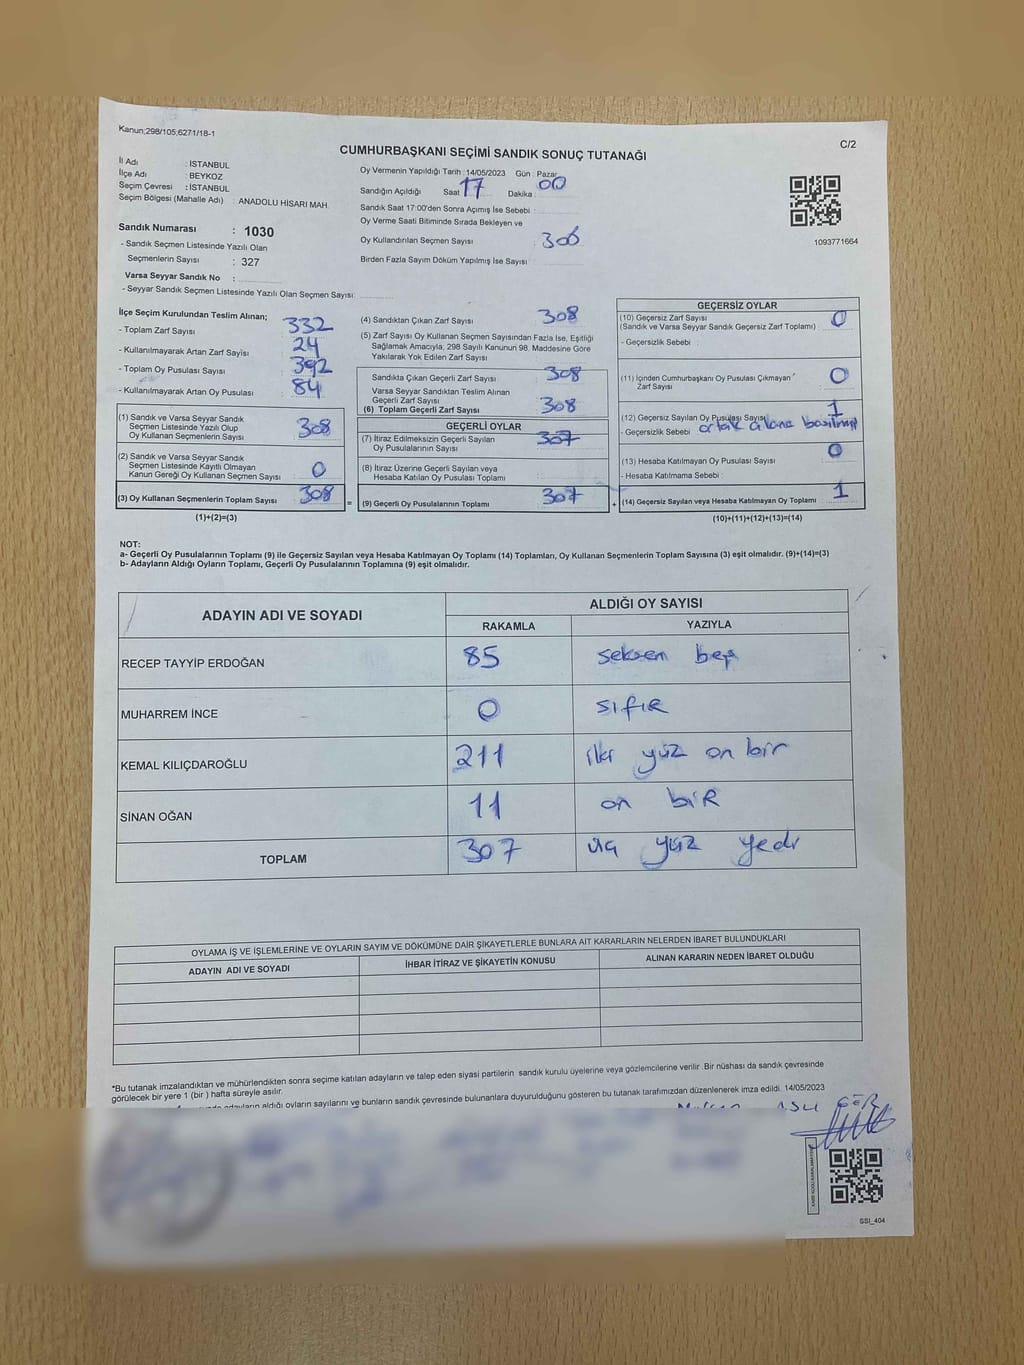 Kanun;298/105,6271/18-1
C/2
CUMHURBAŞKANI SEÇİMİ SANDIK SONUÇ TUTANAĞI
İl Adı : İSTANBUL
İlçe Adı : BEYKOZ
Seçim Çevresi : İSTANBUL
Seçim Bölgesi (Mahalle Adı) : ANADOLU HİSARI MAH.
Sandık Numarası : 1030
- Sandık Seçmen Listesinde Yazılı Olan
Seçmenlerin Sayısı : 327
Varsa Seyyar Sandık No :
- Seyyar Sandık Seçmen Listesinde Yazılı Olan Seçmen Sayısı:
Oy Vermenin Yapıldığı Tarih :14/05/2023 Gün : Pazar
Sandığın Açıldığı Saat 17 Dakika : 00
Sandık Saat 17:00'den Sonra Açımış İse Sebebi :
Oy Verme Saati Bitiminde Sırada Bekleyen ve
Oy Kullandırılan Seçmen Sayısı
Birden Fazla Sayım Döküm Yapılmış İse Sayısı
1093771664
İlçe Seçim Kurulundan Teslim Alınan;
- Toplam Zarf Sayısı : 332
- Kullanılmayarak Artan Zarf Sayısı : 24
- Toplam Oy Pusulası Sayısı : 392
- Kullanılmayarak Artan Oy Pusulası : 84
(1) Sandık ve Varsa Seyyar Sandık
Seçmen Listesinde Yazılı Olup
Oy Kullanan Seçmenlerin Sayısı 308
(2) Sandık ve Varsa Seyyar Sandık
Seçmen Listesinde Kayıtlı Olmayan
Kanun Gereği Oy Kullanan Seçmen Sayısı 0
(3) Oy Kullanan Seçmenlerin Toplam Sayısı 308
(1)+(2)=(3)
(4) Sandıktan Çıkan Zarf Sayısı 308
(5) Zarf Sayısı Oy Kullanan Seçmen Sayısından Fazla İse, Eşitliği
Sağlamak Amacıyla, 298 Sayılı Kanunun 98. Maddesine Göre
Yakılarak Yok Edilen Zarf Sayısı
Sandıkta Çıkan Geçerli Zarf Sayısı 308
Varsa Seyyar Sandıktan Teslim Alınan
Geçerli Zarf Sayısı
(6) Toplam Geçerli Zarf Sayısı 308
GEÇERLİ OYLAR
(7) İtiraz Edilmeksizin Geçerli Sayılan
Oy Pusulasının Sayısı 307
(8) İtiraz Üzerine Geçerli Sayılan veya
Hesaba Katılan Oy Pusulası Toplamı
=
(9) Geçerli Oy Pusulalarının Toplamı 307
+
GEÇERSİZ OYLAR
(10) Geçersiz Zarf Sayısı
(Sandık ve Varsa Seyyar Sandık Geçersiz Zarf Toplamı) 0
- Geçersizlik Sebebi :
(11) İçinden Cumhurbaşkanı Oy Pusulası Çıkmayan
Zarf Sayısı 0
(12) Geçersiz Sayılan Oy Pusulası Sayısı 1
- Geçersizlik Sebebi ortak alana basılmış
(13) Hesaba Katılmayan Oy Pusulası Sayısı 0
- Hesaba Katılmama Sebebi :
(14) Geçersiz Sayılan veya Hesaba Katılmayan Oy Toplamı 1
(10)+(11)+(12)+(13)=(14)
NOT:
a- Geçerli Oy Pusulalarının Toplamı (9) ile Geçersiz Sayılan veya Hesaba Katılmayan Oy Toplamı (14) Toplamları, Oy Kullanan Seçmenlerin Toplam Sayısına (3) eşit olmalıdır. (9)+(14)=(3)
b- Adayların Aldığı Oyların Toplamı, Geçerli Oy Pusulalarının Toplamına (9) eşit olmalıdır.
ADAYIN ADI VE SOYADI
ALDIĞI OY SAYISI
RAKAMLA YAZIYLA
RECEP TAYYİP ERDOĞAN 85 seksen beş
MUHARREM İNCE 0 sıfır
KEMAL KILIÇDAROĞLU 211 iki yüz on bir
SİNAN OĞAN 11 on bir
TOPLAM 307 üç yüz yedi
OYLAMA İŞ VE İŞLEMLERİNE VE OYLARIN SAYIM VE DÖKÜMÜNE DAİR ŞİKAYETLERLE BUNLARA AİT KARARLARIN NELERDEN İBARET BULUNDUKLARI
ADAYIN ADI VE SOYADI İHBAR İTİRAZ VE ŞİKAYETİN KONUSU ALINAN KARARIN NEDEN İBARET OLDUĞU
*Bu tutanak imzalandıktan ve mühürlendikten sonra seçime katılan adayların ve talep eden siyasi partilerin sandık kurulu üyelerine veya gözlemcilerine verilir. Bir nüshası da sandık çevresinde
görülecek bir yere 1 (bir ) hafta süreyle asılır.
adayların aldığı oyların sayılarını ve bunların sandık çevresinde bulunanlara duyurulduğunu gösteren bu tutanak tarafımızdan düzenlenerek imza edildi. 14/05/2023
SSI_404